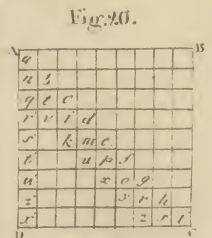 Fig. 20.
A B
a
n b
q e c
r v i d
s k m e
t u p f
u x o g
z s r h
x z s i
D C